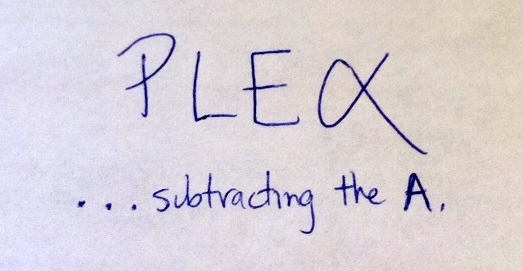 PLEα
...subtracting the A.